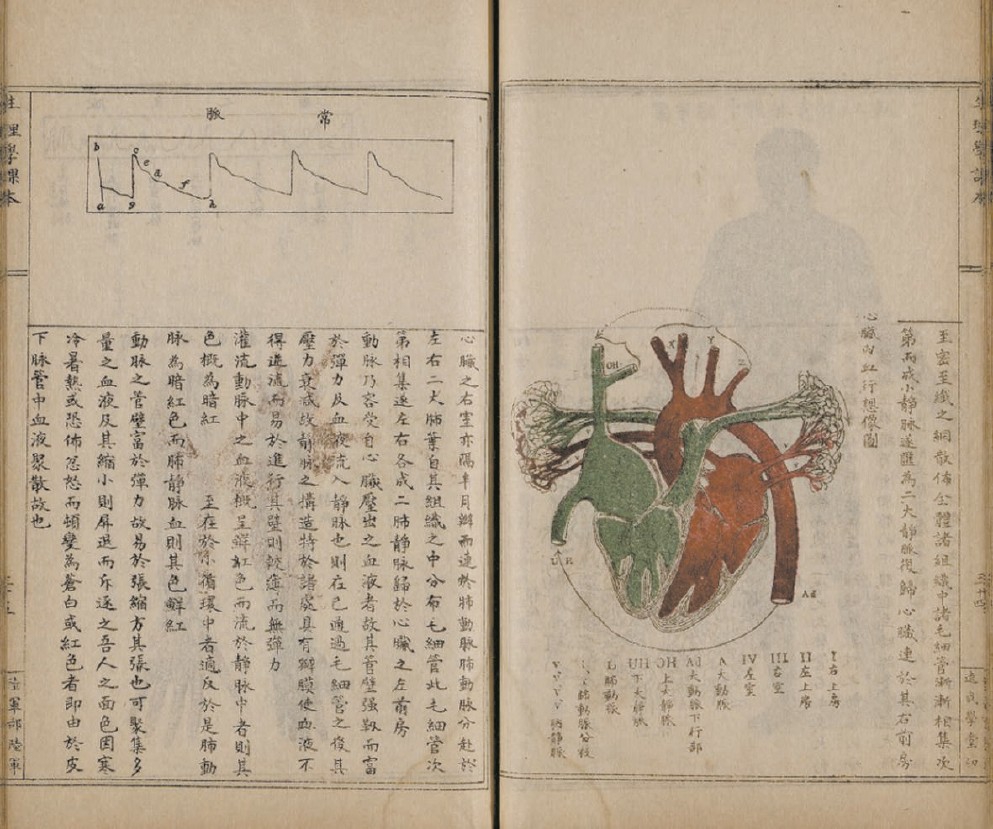 生理學課本
速成學堂印
至密至纖之網散佈全體諸組織中諸毛細管漸漸相集次
第而成小靜脈遂匯為二大靜脈復歸心臟連於其右前房
心臟內血行想像圖
OH
Y
Ad
I 右上房
II 左上房
III 右室
IV 左室
A 大動脈
Ad 大動脈下行部
OH 上大靜脈
UH 下大靜脈
L 肺動脈
肺動脈分枝
v v v v 肺靜脈
常脈
b c e d f a g h
心臟之右室亦隔半月瓣而連於肺動脈肺動脈分赴於
左右二大肺葉自其組織之中分布毛細管此毛細管次
第相集遂左右各成二肺靜脈歸於心臟之左前房
動脈乃容受自心臟壓出之血液者故其管壁强靱而富
於彈力及血液流入靜脈也則在已通過毛細管之後其
壓力衰減故靜脈之構造特於諸處具有瓣膜使血液不
得逆流而易於進行其壁則菲薄而無彈力
灌流動脈中之血液概呈鮮紅色而流於靜脈中者則其
色概為暗紅 至在於小循環中者適反於是肺動
脈為暗紅色而肺靜脈血則其色鮮紅
動脈之管壁富於彈力故易於張縮方其張也可聚集多
量之血液及其縮小則屏退而斥逐之吾人之面色因寒
冷暑熱或恐佈忿怒而頓變為蒼白或紅色者即由於皮
下脉管中血液聚散故也
生理學課本
陸軍部陸軍